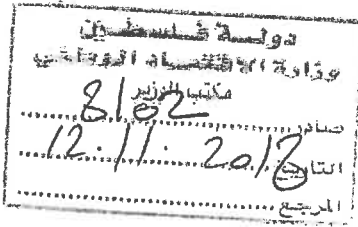 دولة فلسطين
وزارة الاقتصاد الوطني
مكتب الوزير
صادر 8102
التاريخ 12.11.2018
المرجع